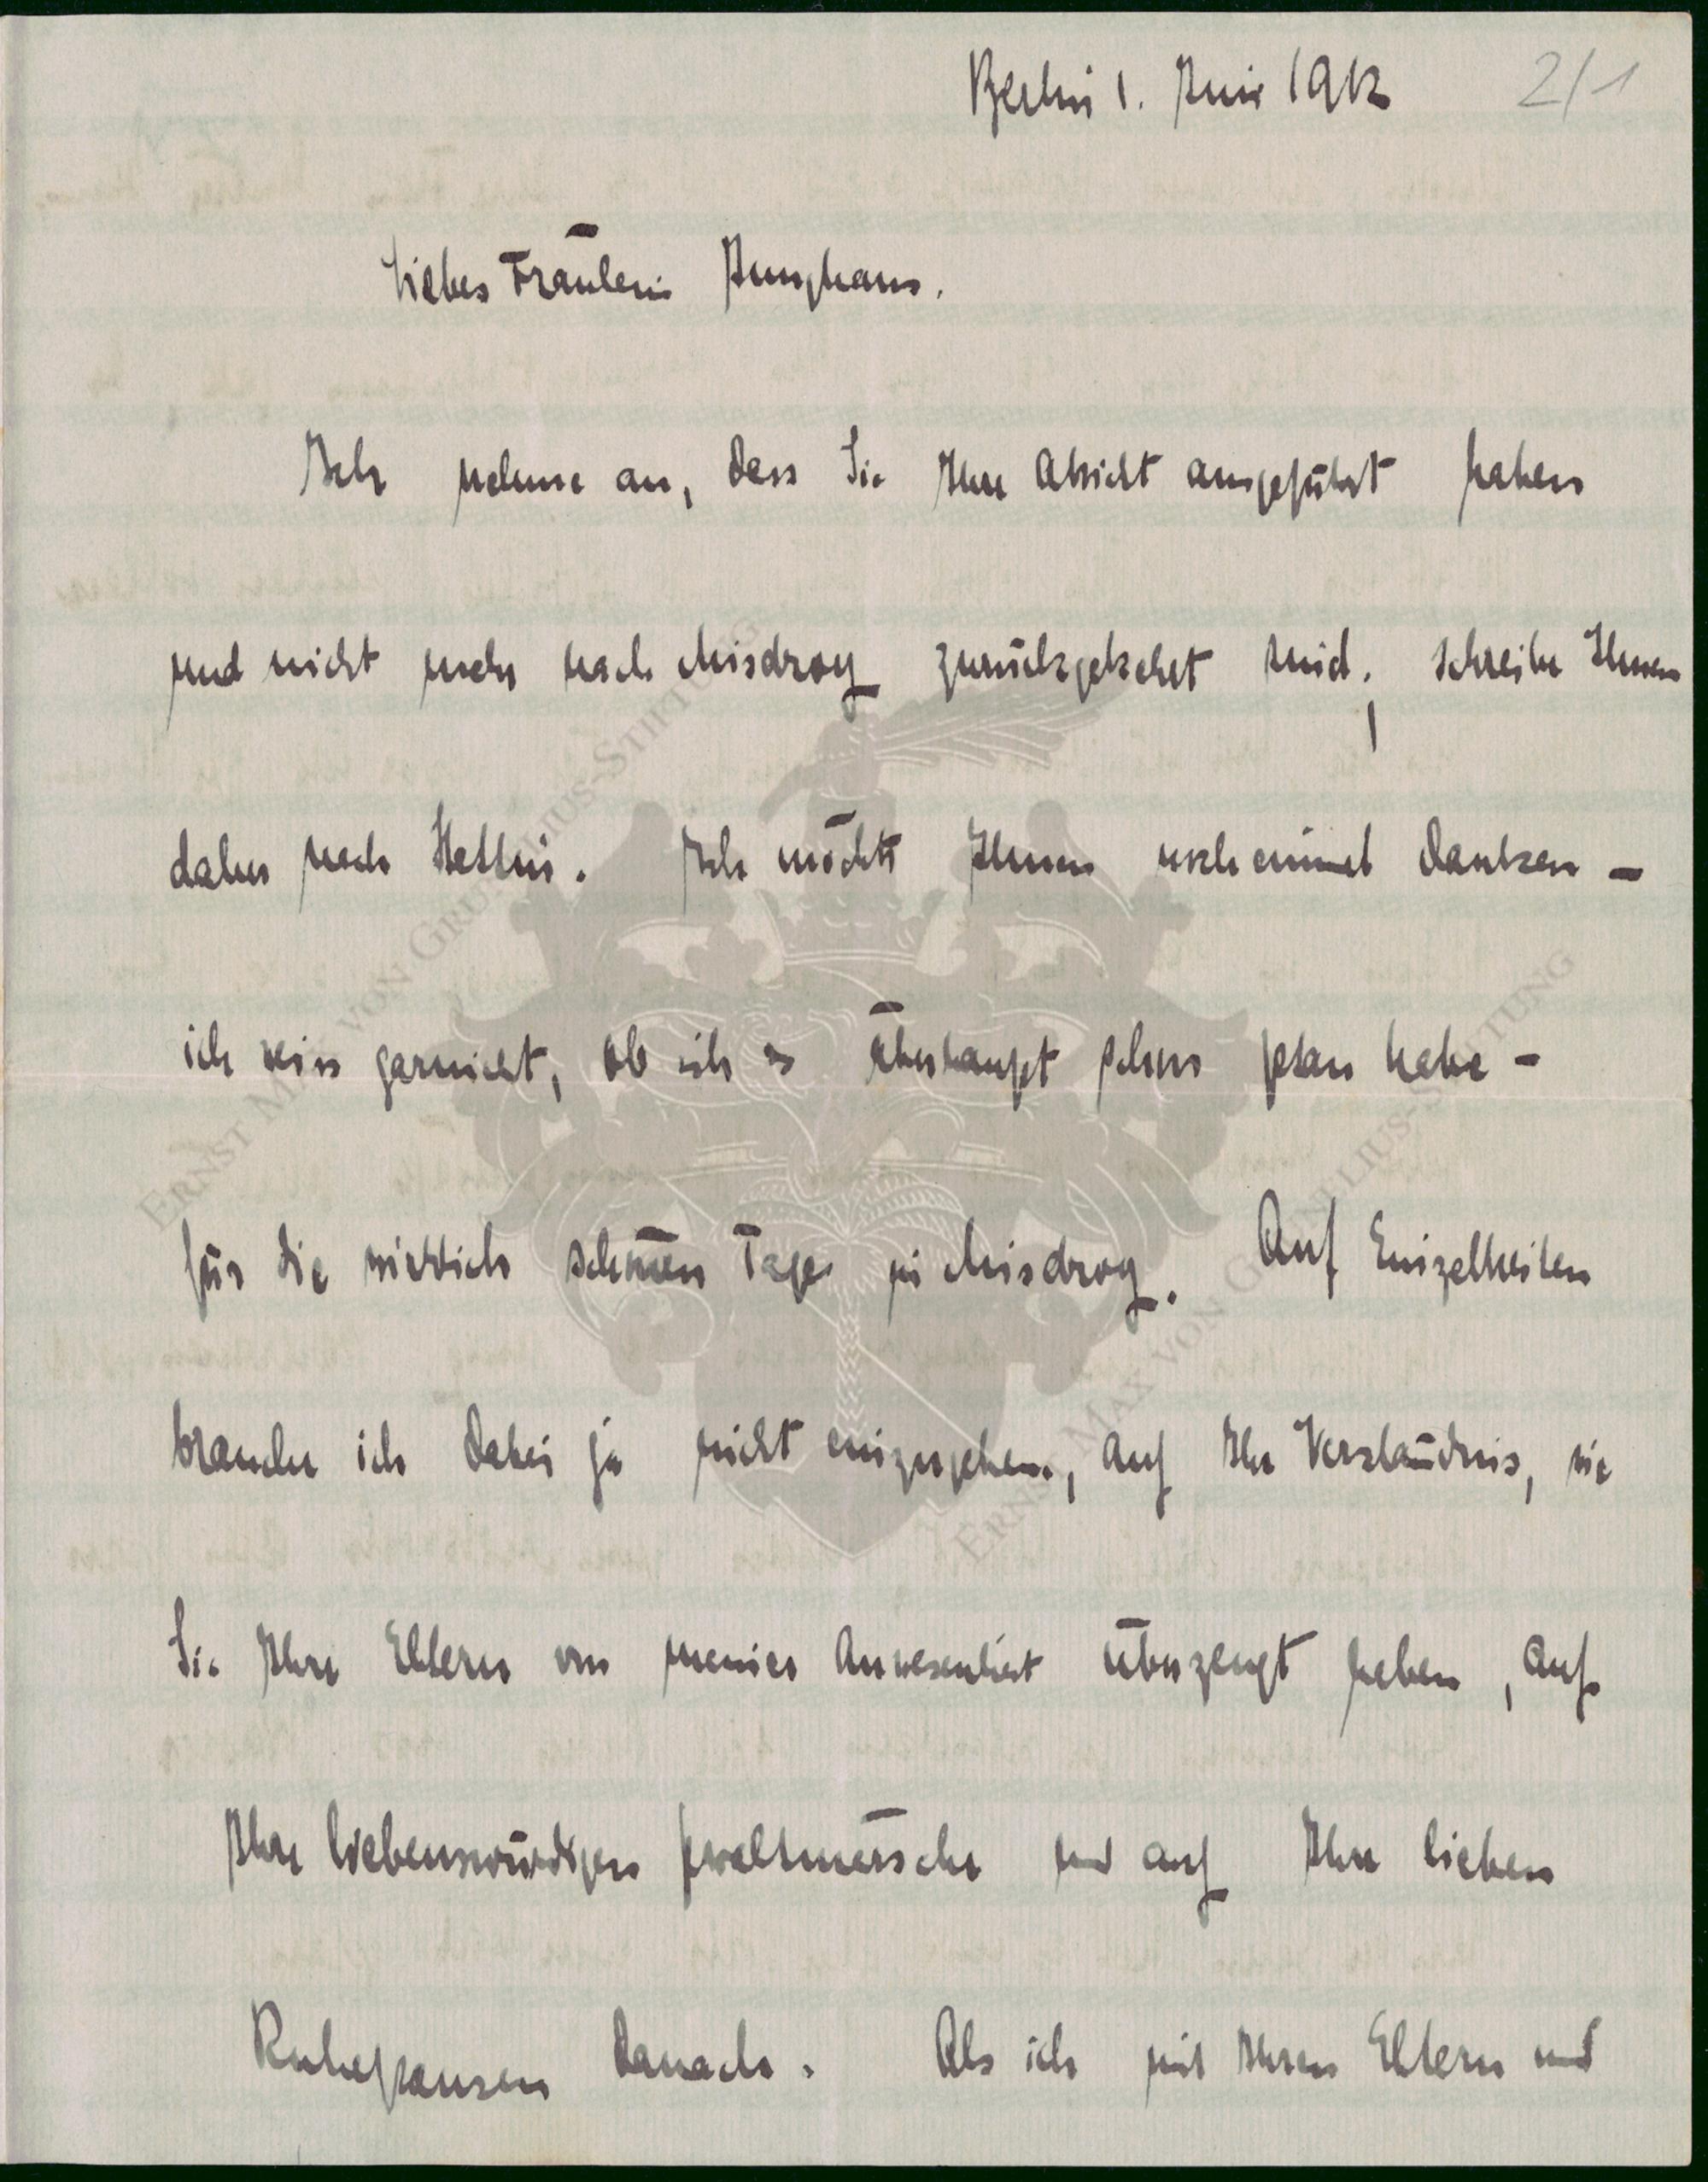 Berlin 1. Juni 1912
2/1
Liebes Fräulein Junghans.
Ich nehme an, dass Sie Ihre Absicht ausgeführt haben
und nicht mehr nach Misdroy zurückgekehrt sind; schreibe Ihnen
daher nach Stettin. Ich möchte Ihnen noch einmal danken –
ich weiss garnicht, ob ich es überhaupt schon getan habe –
für die wirklich schönen Tage in Misdroy. Auf Einzelheiten
brauche ich dabei ja nicht einzugehen, auf Ihr Verständnis, wie
Sie Ihre Eltern von meiner Anwesenheit überzeugt haben, auf
Ihre liebenswürdigen Gewaltmärsche und auf Ihre lieben
Ruhepausen danach. Als ich mit Ihren Eltern und
ERNST MAX VON GRUNELIUS-STIFTUNG
ERNST MAX VON GRUNELIUS-STIFTUNG